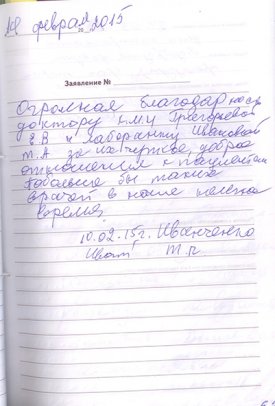 19 февраля 2015
20
Заявление №
Огромная благодарность
доктору к.м.н Григорьевой
Е.В и лаборанту Ивановой
М.А за чуткое, доброе
отношение к пациентам
побольше бы таких
врачей в наше нелегкое
время.
10.02.15г. Иванченко
Т.П.